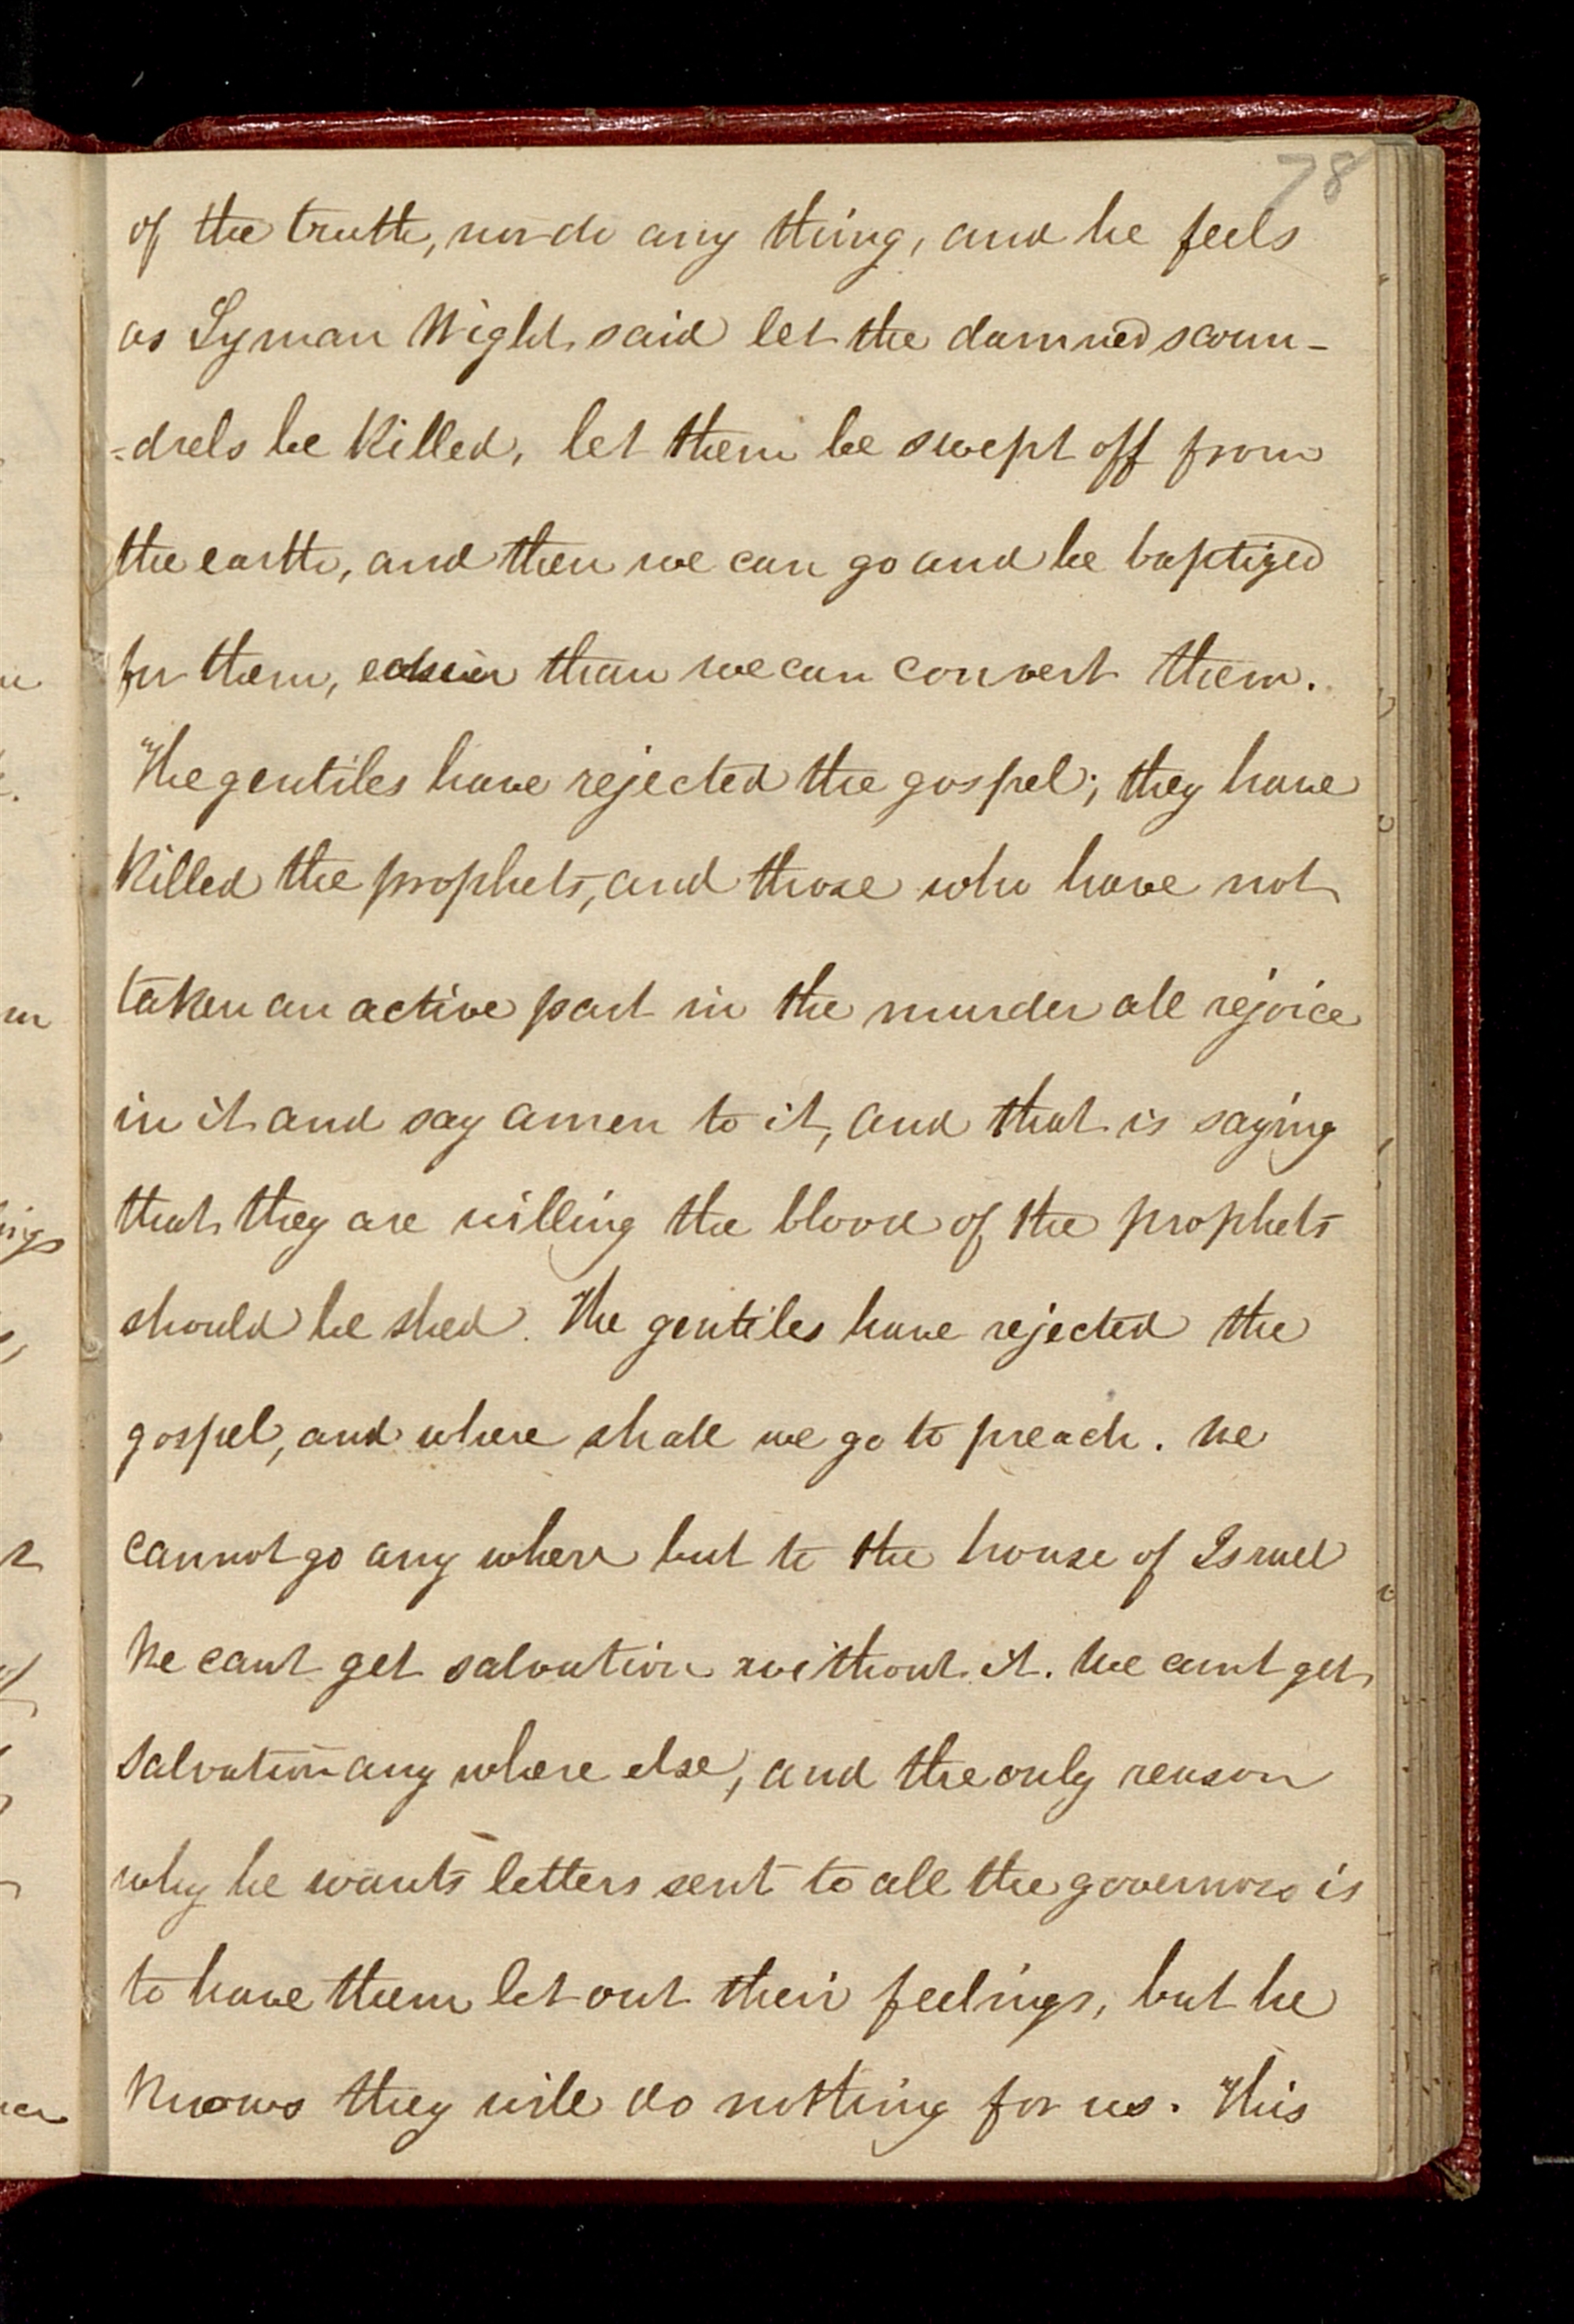 78
of the truth, nor do any thing, and he feels
as Lyman Wight said let the damned scoun-
=drels be killed, let them be swept off from
the earth, and then we can go and be baptized
for them, easier than we can convert them.
The gentiles have rejected the gospel; they have
killed the prophets, and those who have not
taken an active part in the murder all rejoice
in it and say amen to it, and that is saying
that they are willing the blood of the prophets
should be shed. The gentiles have rejected the
gospel, and where shall we go to preach. We
cannot go any where but to the house of Israel
We cant get salvation without it. We cant get
salvation any where else, and the only reason
why he wants letters sent to all the governors is
to have them let out their feelings, but he
knows they will do nothing for us. This